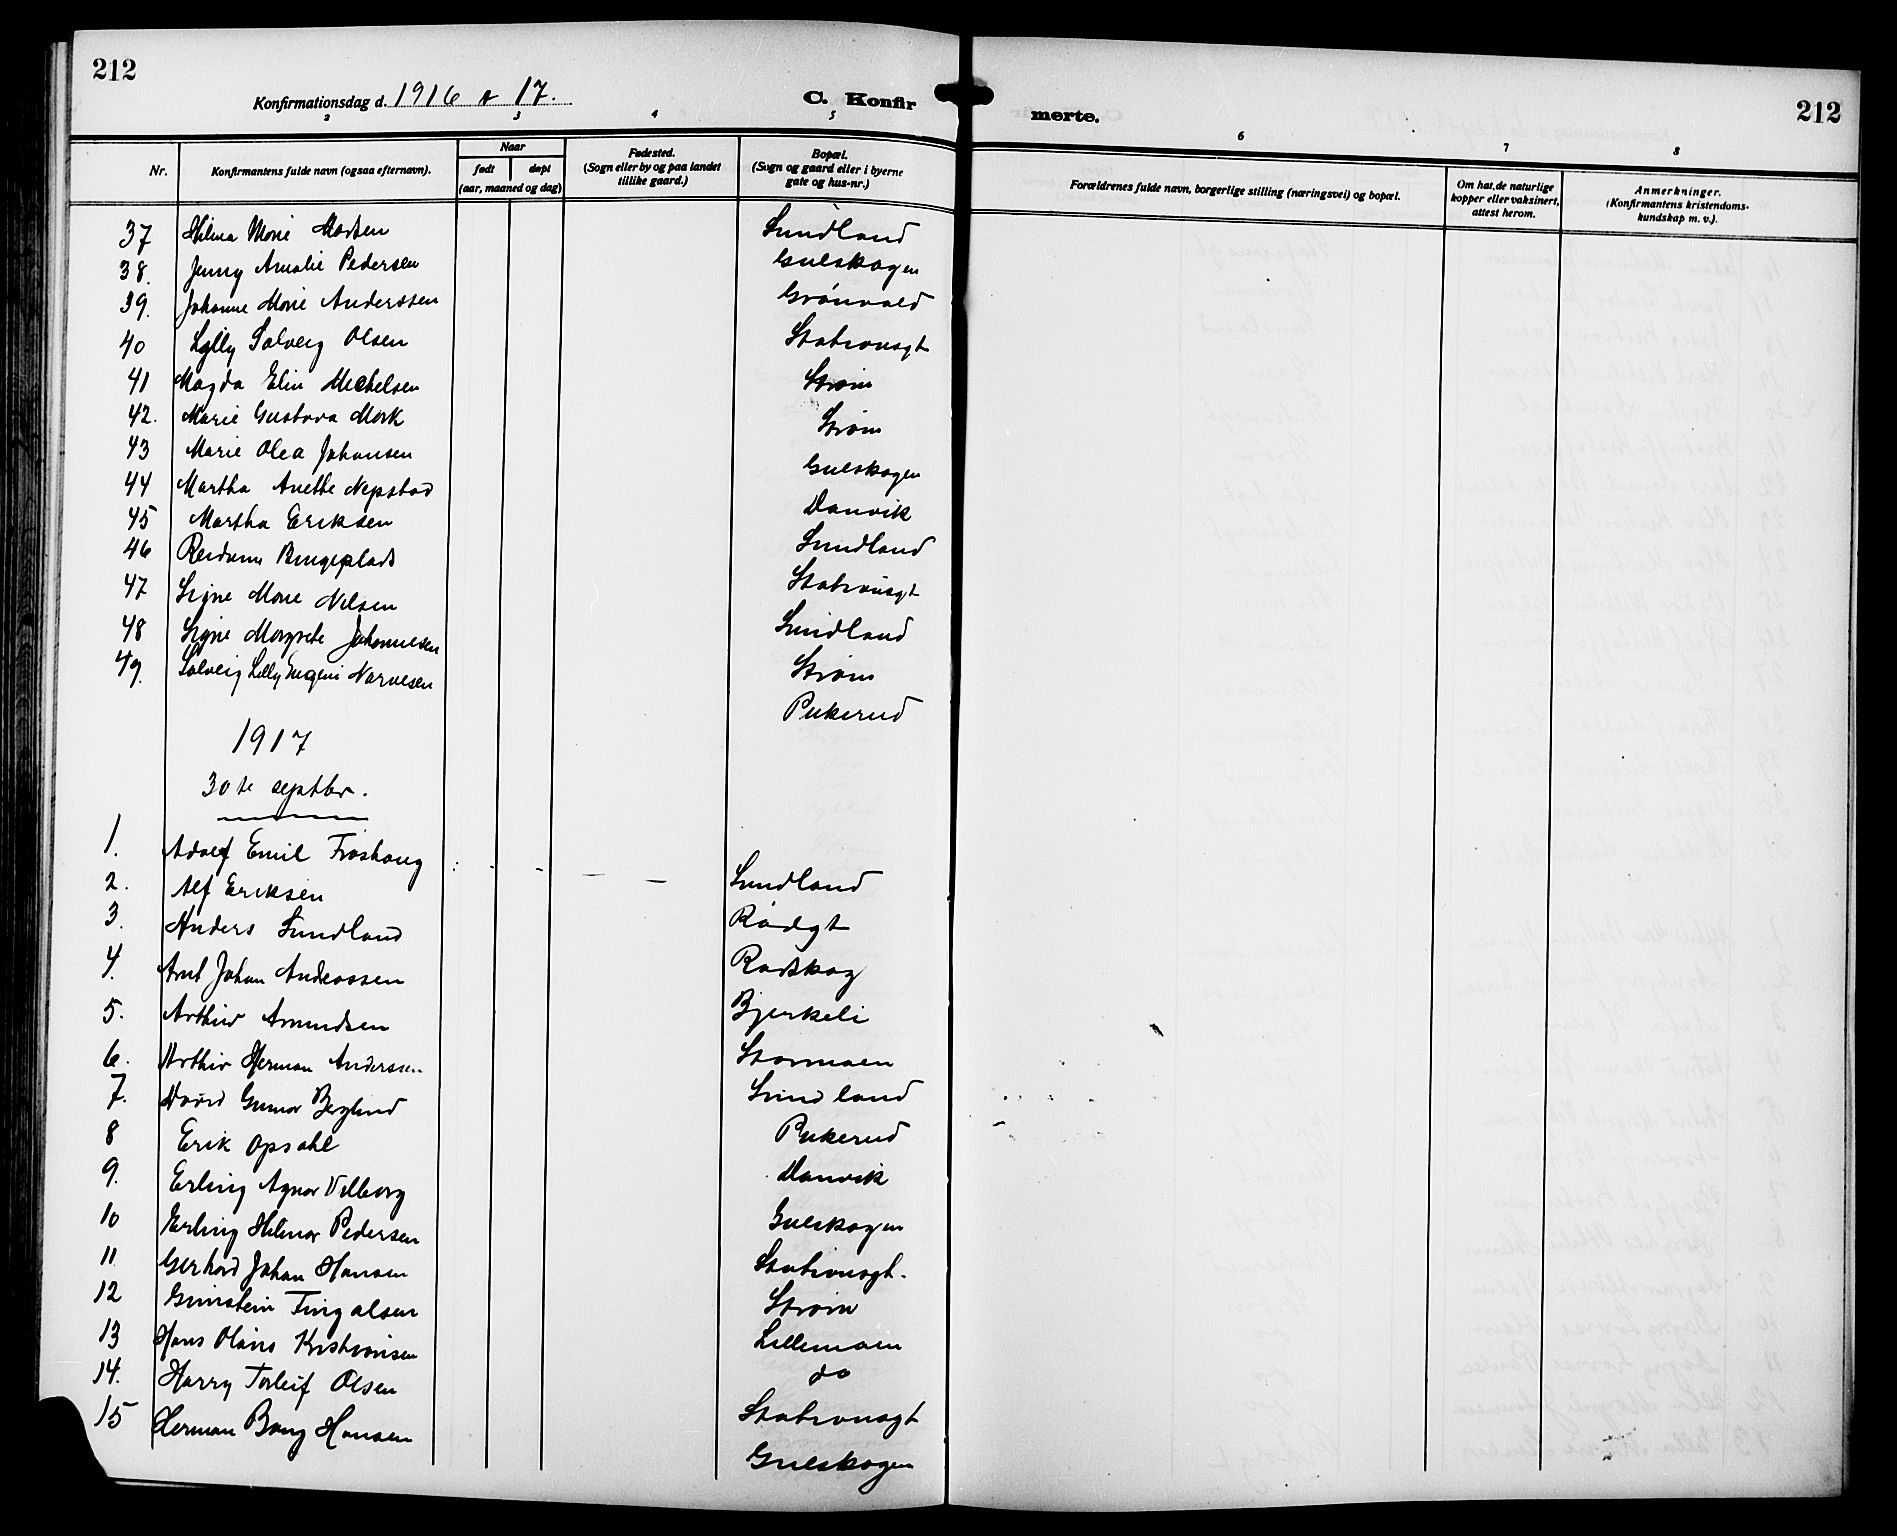 212
Konfirmationsdag d. 1916 & 17.
C. Konfirmerte.
212
2 3 4 5 6 7 8
Nr.
Konfirmantens fulde navn (ogsaa efternavn).
Naar
født døpt
(aar, maaned og dag)
Fødested.
(Sogn eller by og paa landet
tillike gaard.)
Bopæl.
(Sogn og gaard eller i byerne
gate og hus-nr.)
Forældrenes fulde navn, borgerlige stilling (næringsvei) og bopæl.
Om hat, de naturlige
kopper eller vaksinert,
attest herom.
Anmerkninger.
(Konfirmantens kristendoms-
kundskap m. v.).
37 Hilma Marie Madsen Sundland
38. Jenny Amalie Pedersen Gulskogen
39. Johanne Marie Anderssen Grønvold
40 Lylly Solveig Olsen Stationsgt
41 Magda Elin Michelsen Strøm
42. Marie Gustava Mørk Strøm
43 Marie Olea Johansen Gulskogen
44 Martha Anette Nepstad Danvik
45 Martha Eriksen Sundland
46 Reidunn Bingeplads Stationsgt
47 Signe Marie Nilsen Sundland
48 Signe Margrete Johannesen Strøm
49. Solveig Lilly Eugeni Narvesen Pukerud
1917
30te septbr.
1. Adolf Emil Froshaug Sundland
2. Alf Eriksen Rådgt
3. Anders Sundland Rødskog
4. Arnt Johan Andreassen Bjerkeli
5. Arthur Amundsen Stormoen
6. Arthur Herman Anderssen Sundland
7. David Gunnar Berglund Pukerud
8 Erik Opsahl Danvik
9. Erling Agnar Vilberg Gulskogen
10 Erling Hilmar Pedersen Stationsgt.
11 Gerhard Johan Hansen Strøm
12 Gunstein Tingalsen Lillemoen
13 Hans Olavs Kristiansen do
14. Harry Torleif Olsen Stationsgt
15 Herman Bang Hansen Gulskogen